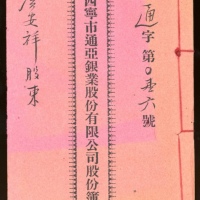 通字第0壹六號
西寧市通亞銀業股份有限公司股份簿
安祥股東